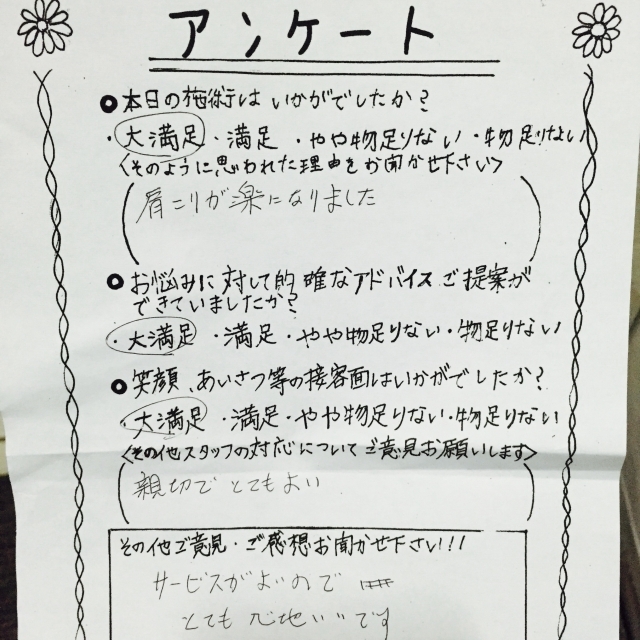 アンケート
本日の施術はいかがでしたか?
・大満足・満足・やや物足りない・物足りない
<そのように思われた理由をお聞かせ下さい>
肩こりが楽になりました
お悩みに対して的確なアドバイスご提案が
できていましたか?
・大満足・満足・やや物足りない・物足りない
笑顔、あいさつ等の接客面はいかがでしたか?
・大満足・満足・やや物足りない・物足りない
<その他スタッフの対応についてご意見お願いします>
親切でとてもよい
その他ご意見・ご感想お聞かせ下さい!!!
サービスがよいので
とても心地いいです